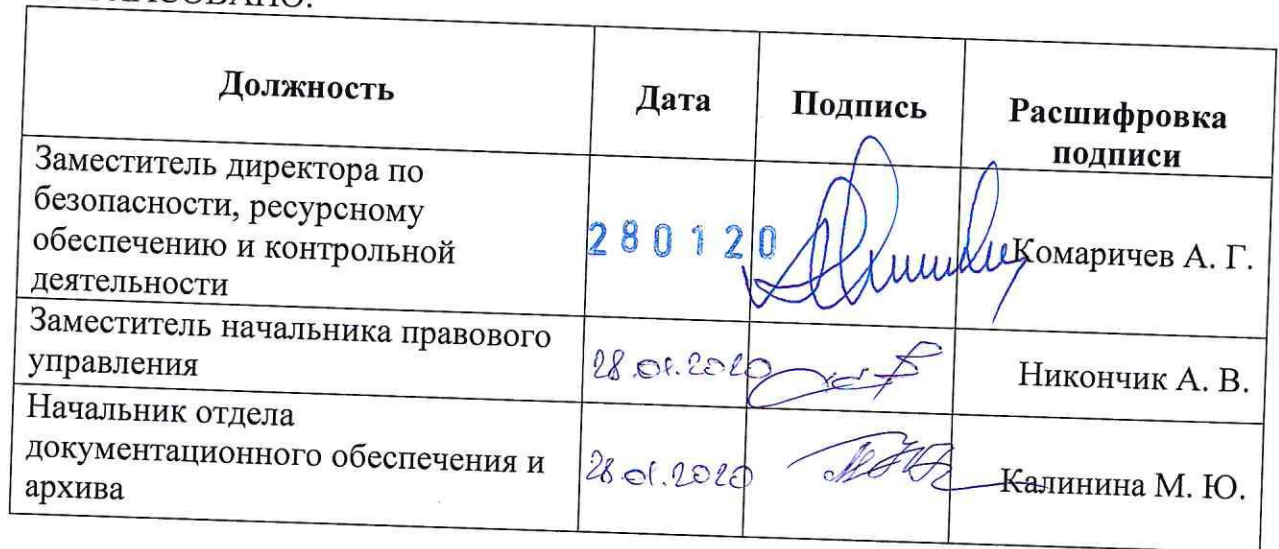 Должность Дата Подпись Расшифровка
подписи
Заместитель директора по
безопасности, ресурсному
обеспечению и контрольной
деятельности
280120
Комаричев А. Г.
Заместитель начальника правового
управления
28.01.2020
Никончик А. В.
Начальник отдела
документационного обеспечения и
архива
28.01.2020
Калинина М. Ю.